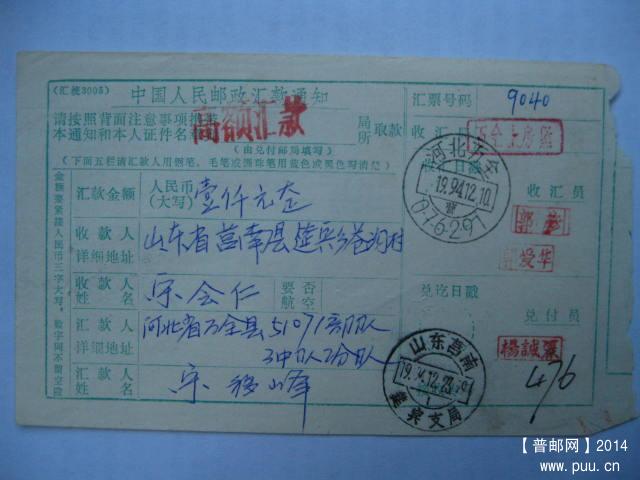 (汇梭3005)
中国人民邮政汇款通知
请按照背面注意事项
本通知和本人证件名
高额汇款
局
所
取款
(由兑付邮局填写)
(下面五栏请汇款人用钢笔、毛笔或圆珠笔用蓝色或黑色写清楚)
汇款金额
人民币
(大写)
壹仟元
收款人
详细地址
山东省莒南县
村
收款人
姓名
宋会仁
要否
航空
汇款人
详细地址
河北省万全县51071部队
3中队2分队
汇款人
姓名
宋
峰
金额要紧接人民币三字大写,数字间不留空隙
汇票号码
9040
收汇
河北万全
19.94.12.10
076291
收汇员
郭
爱华
兑讫日戳
兑付员
山东莒南
19.94.12.28
支局
476
【普邮网】2014
www.puu.cn